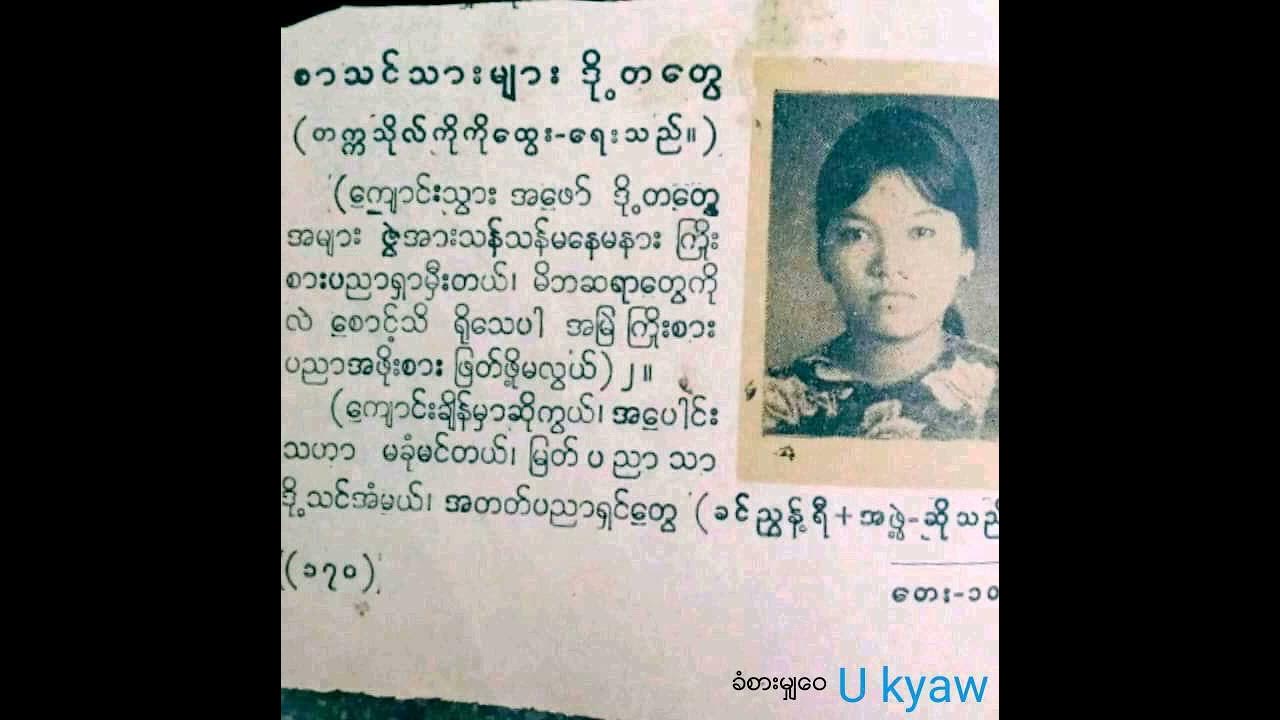 စာသင်သားများ ဒို့တတွေ
(တက္ကသိုလ်ကိုကိုထွေး-ရေးသည်။)
(ကျောင်းသွား အဖော် ဒို့တတွေ
အများ ဇွဲအားသန်သန်မနေမနား ကြိုး
စားပညာရှာမှီးတယ်၊ မိဘဆရာတွေကို
လဲ စောင့်သိ ရိုသေပါ အမြဲ ကြိုးစား
ပညာအဖိုးစား ဖြတ်ဖို့မလွယ်)၂။
(ကျောင်းချိန်မှာဆိုကွယ်၊ အပေါင်း
သဟာ မခုံမင်တယ်၊ မြတ်ပညာသာ
ဒို့သင်အံမယ်၊ အတတ်ပညာရှင်တွေ (ခင်ညွန့်ရီ+အဖွဲ့-ဆိုသည်
(၁၇၀)
တေး-၁၀
ခံစားမျှဝေ U kyaw